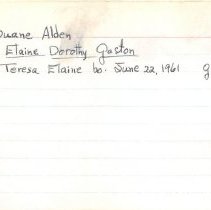 Duane Alden
Elaine Dorothy Gaston
Teresa Elaine bo. June 22, 1961 g